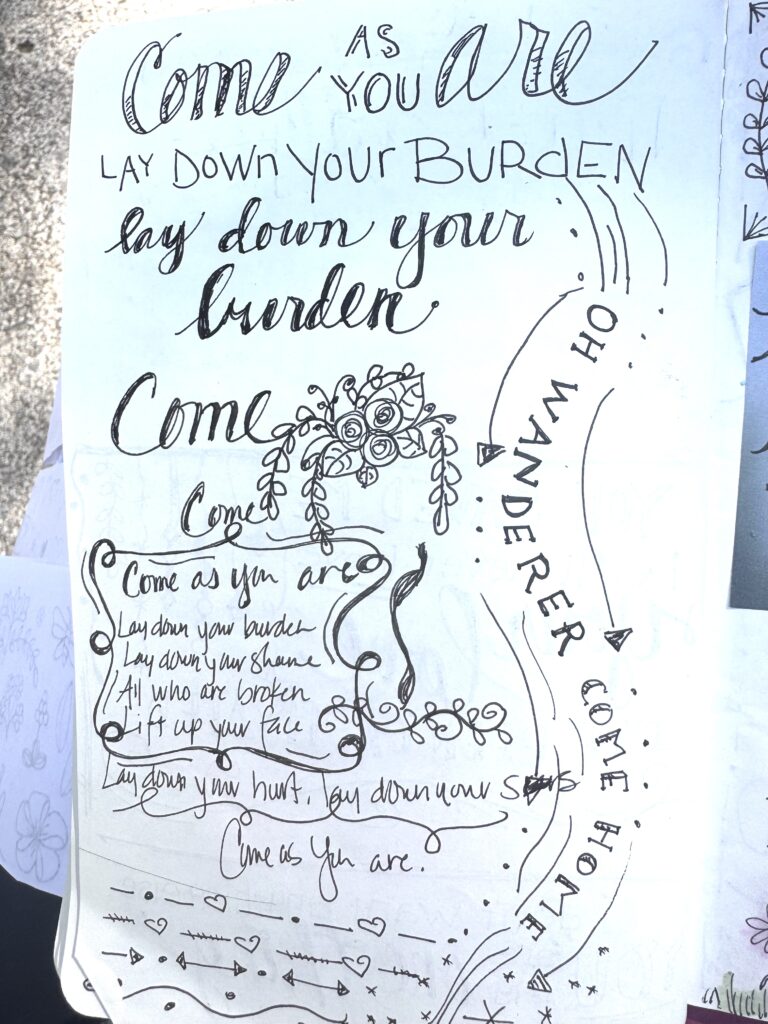 Come AS YOU are
LAY DOWN YOUR BURDEN
lay down your
burden
Come
Come
Come as you are
Lay down your burden
Lay down your shame
All who are broken
Lift up your face
Lay down your hurt, lay down your
Come as You are.
OH WANDERER COME HOME